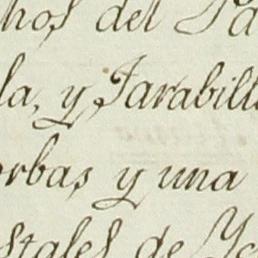 hos del Pa
la, y Tarabill
orbas y una
stales de Ye